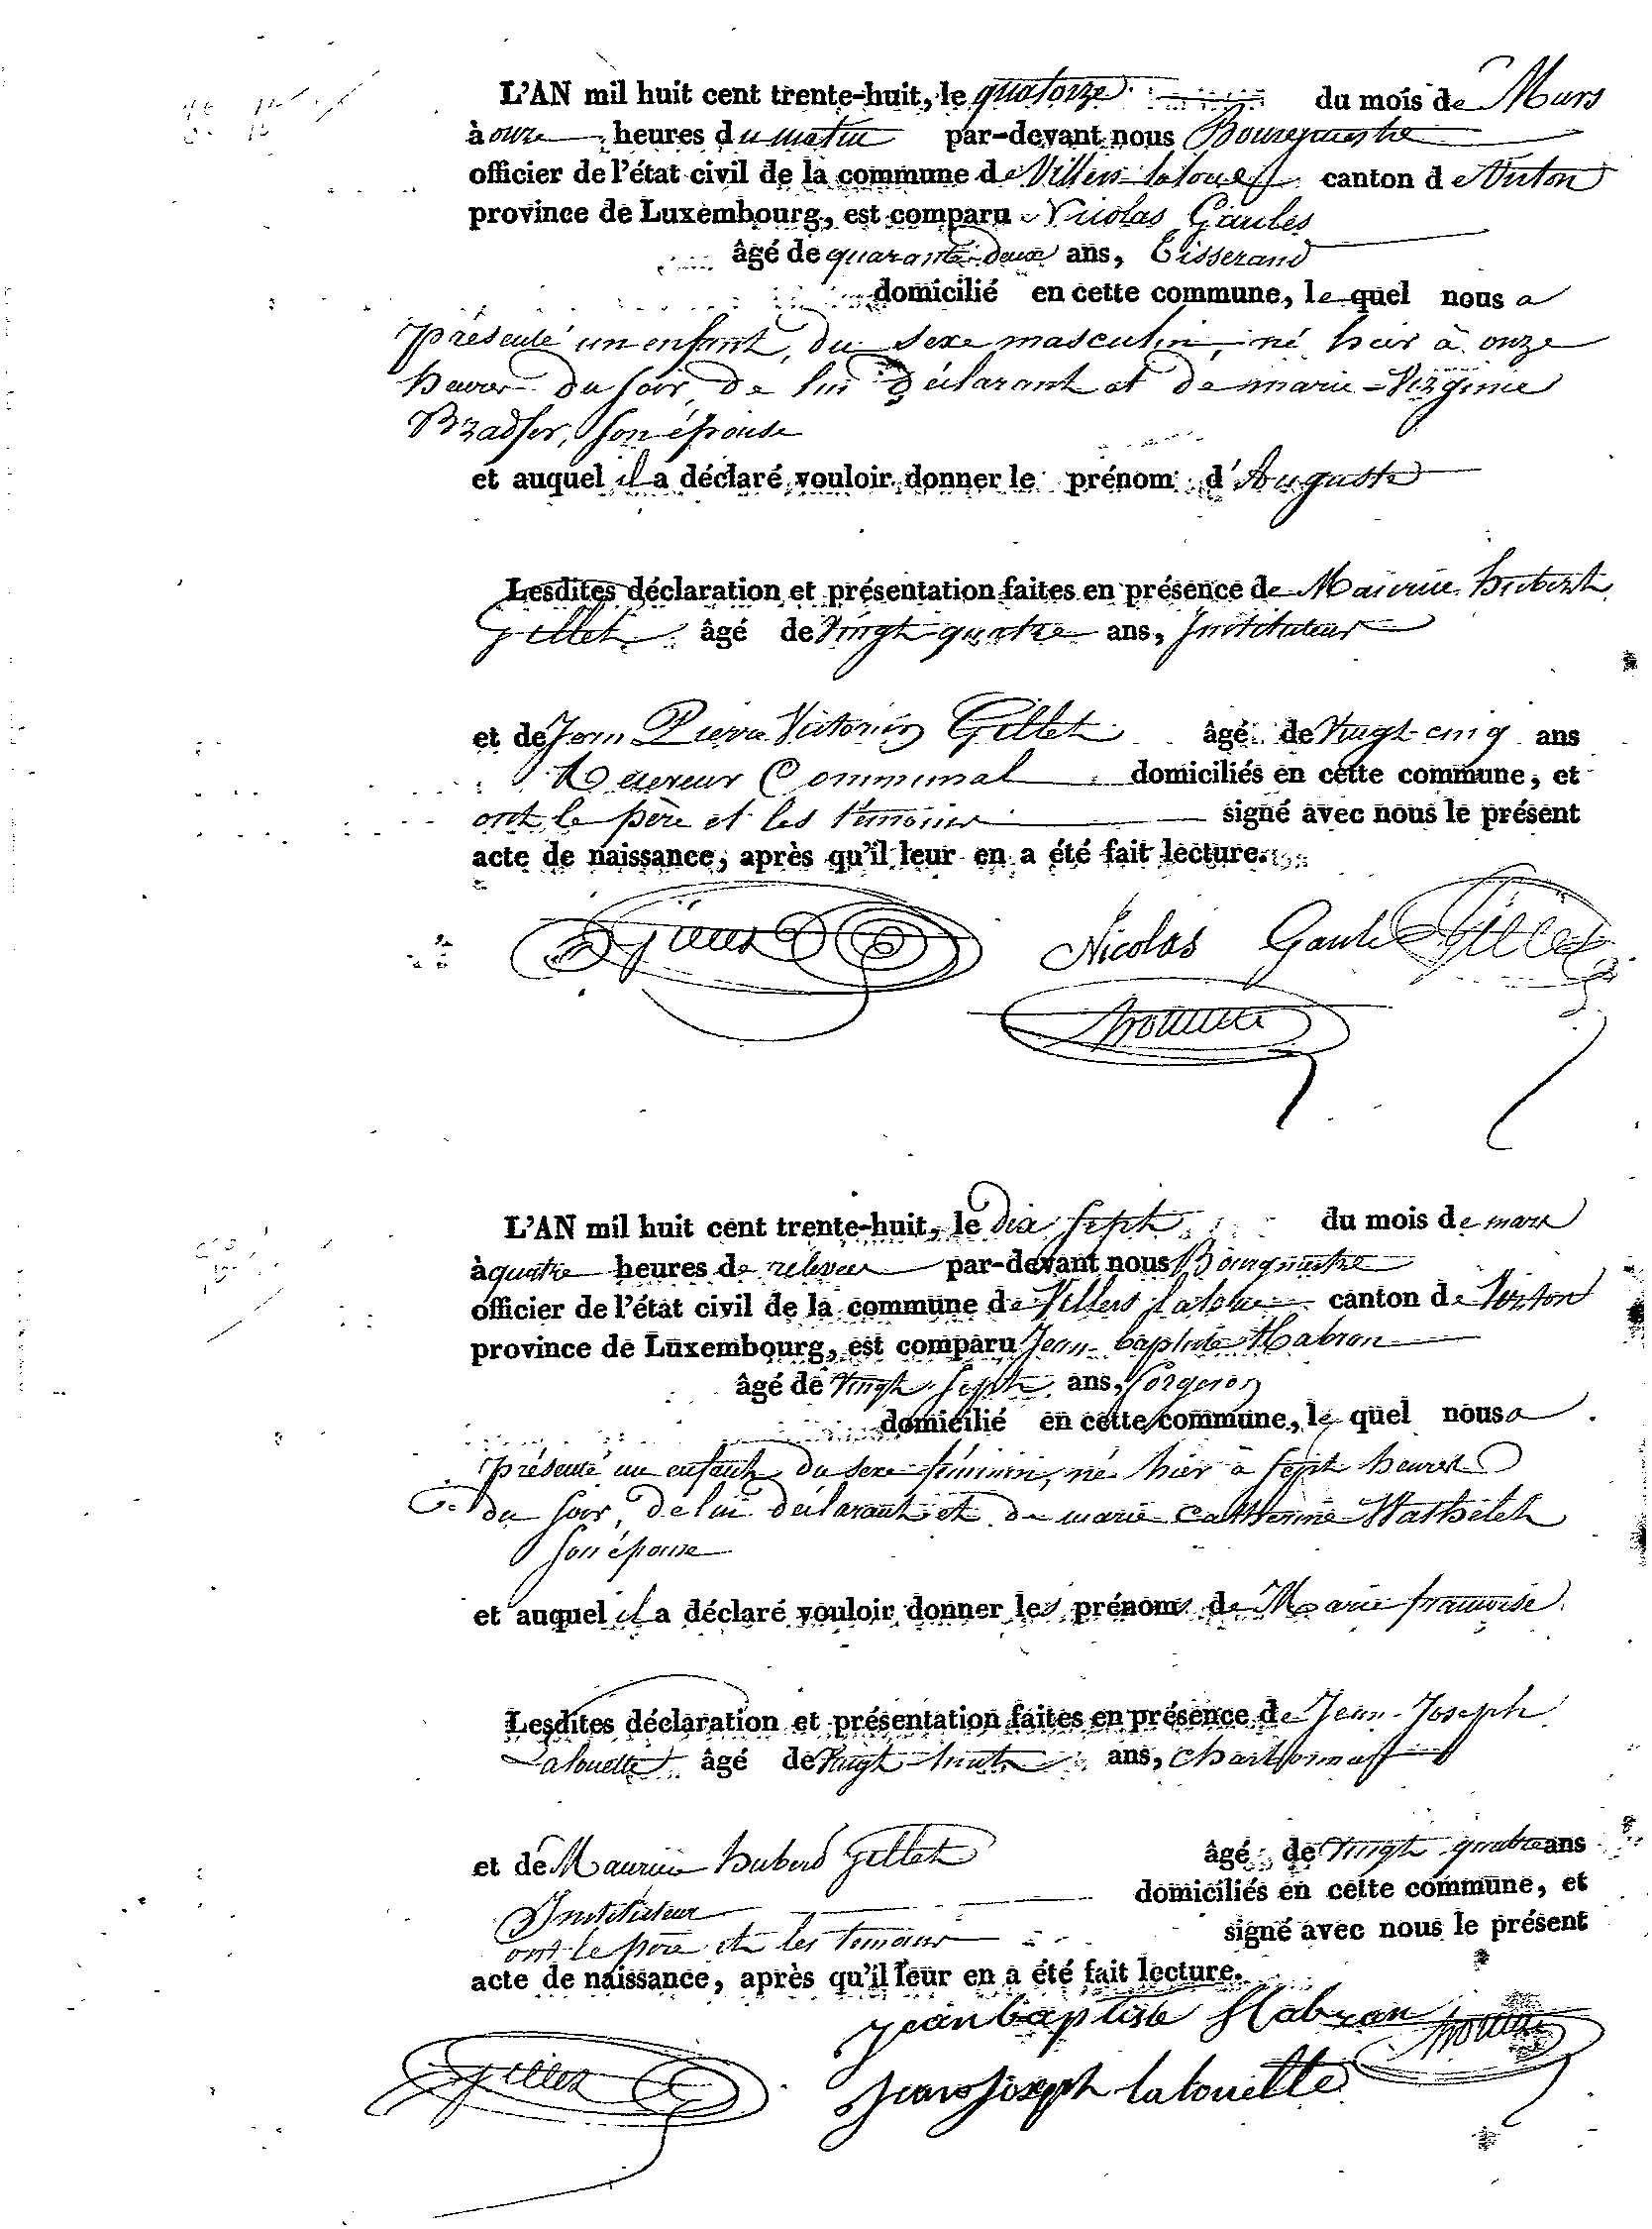 L'AN mil huit cent trente-huit, le quatorze du mois de Mars
à onze heures du matin par-devant nous Bourgmestre
officier de l'état civil de la commune de Villers-laloue canton de Virton
province de Luxembourg, est comparu Nicolas Gaules
âgé de quarante-deux ans, Tisserand
domicilié en cette commune, le quel nous a
présenté un enfant, du sexe masculin, né hier à onze
heures du soir, de lui déclarant et de marie-Virginie
son épouse
et auquel il a déclaré vouloir donner le prénom d'Auguste
Lesdites déclaration et présentation faites en présence de Maurice hubert
Gillet âgé de Vingt-quatre ans, Instituteur
et de Jean Pierre Victorin Gillet âgé de Vingt-cinq ans
Receveur Communal domiciliés en cette commune, et
ont le père et les témoins signé avec nous le présent
acte de naissance, après qu'il leur en a été fait lecture.
Gillet Nicolas Gaules Gillet
L'AN mil huit cent trente-huit, le dix sept du mois de mars
à quatre heures de relevée par-devant nous Bourgmestre
officier de l'état civil de la commune de Villers laloue canton de Virton
province de Luxembourg, est comparu Jean baptiste Habran
âgé de Vingt Sept ans, forgeron
domicilié en cette commune, le quel nous a
présenté un enfant du sexe féminin, né hier à sept heures
du soir, de lui déclarant et de marie catherine Wathelet
son épouse
et auquel il a déclaré vouloir donner les prénoms de Marie françoise
Lesdites déclaration et présentation faites en présence de Jean-Joseph
Lalouette âgé de Vingt-huit ans,
et de Maurice huberd Gillet âgé de Vingt quatre ans
Instituteur domiciliés en cette commune, et
ont le père et les témoins signé avec nous le présent
acte de naissance, après qu'il leur en a été fait lecture.
jean baptiste Habran
Gillet jean joseph lalouette